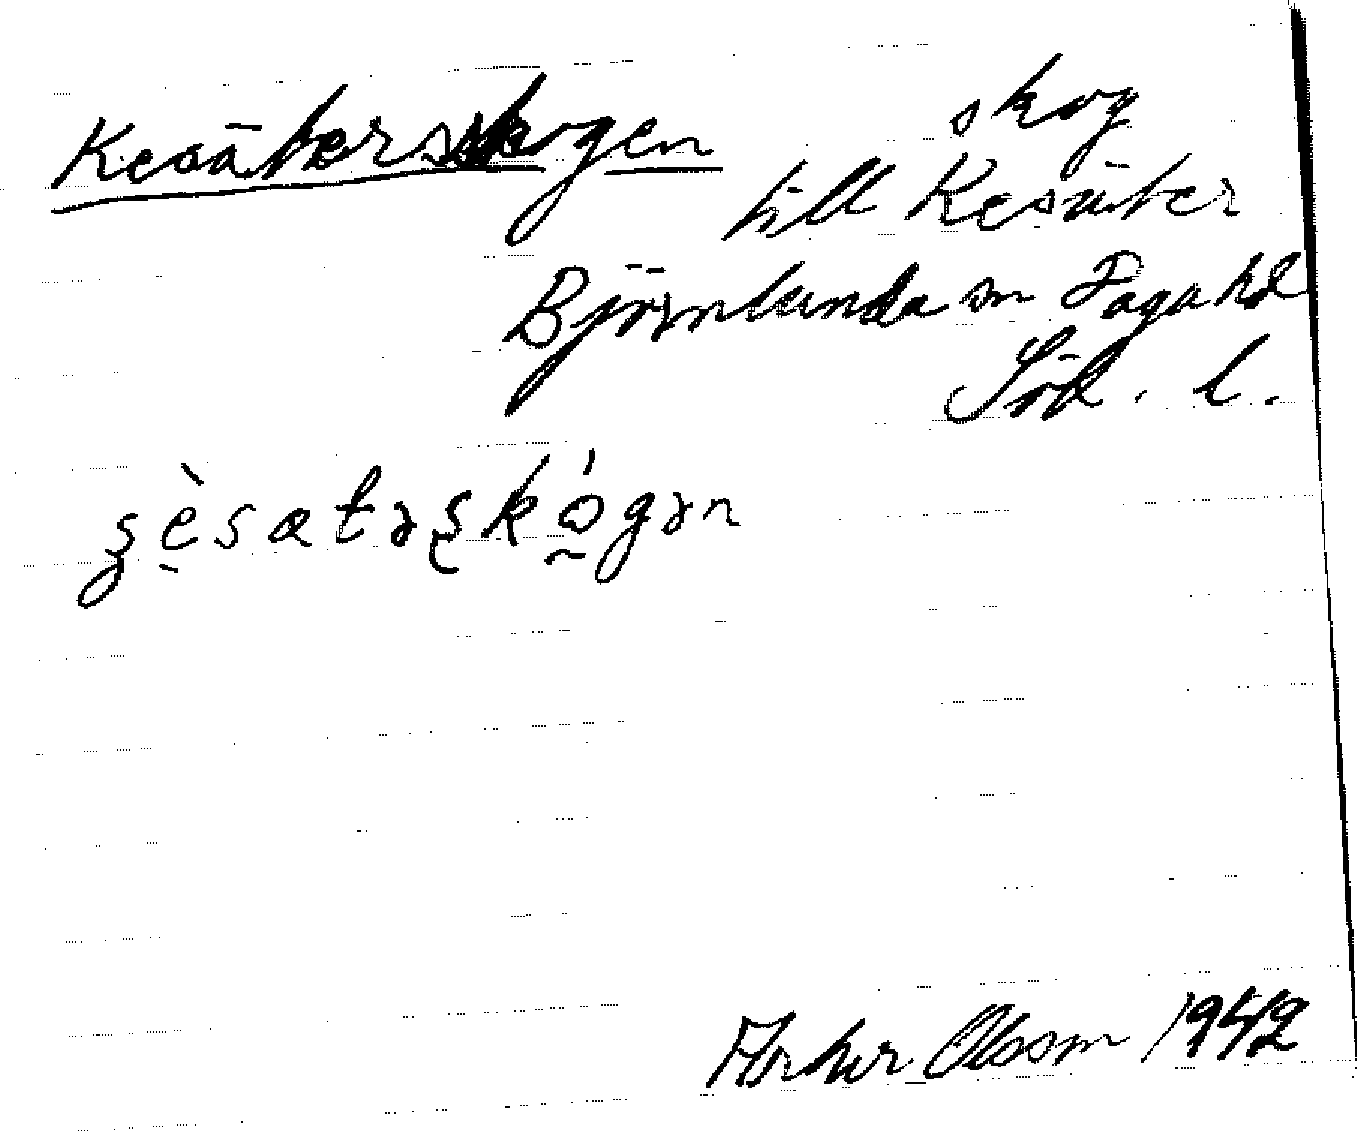 Kesäterskogen
skog
till Kesäter
Björnlunda sn Daga hd
Söd. l.
ʂè̞sætəʂkó̰gən
Olsson 1942